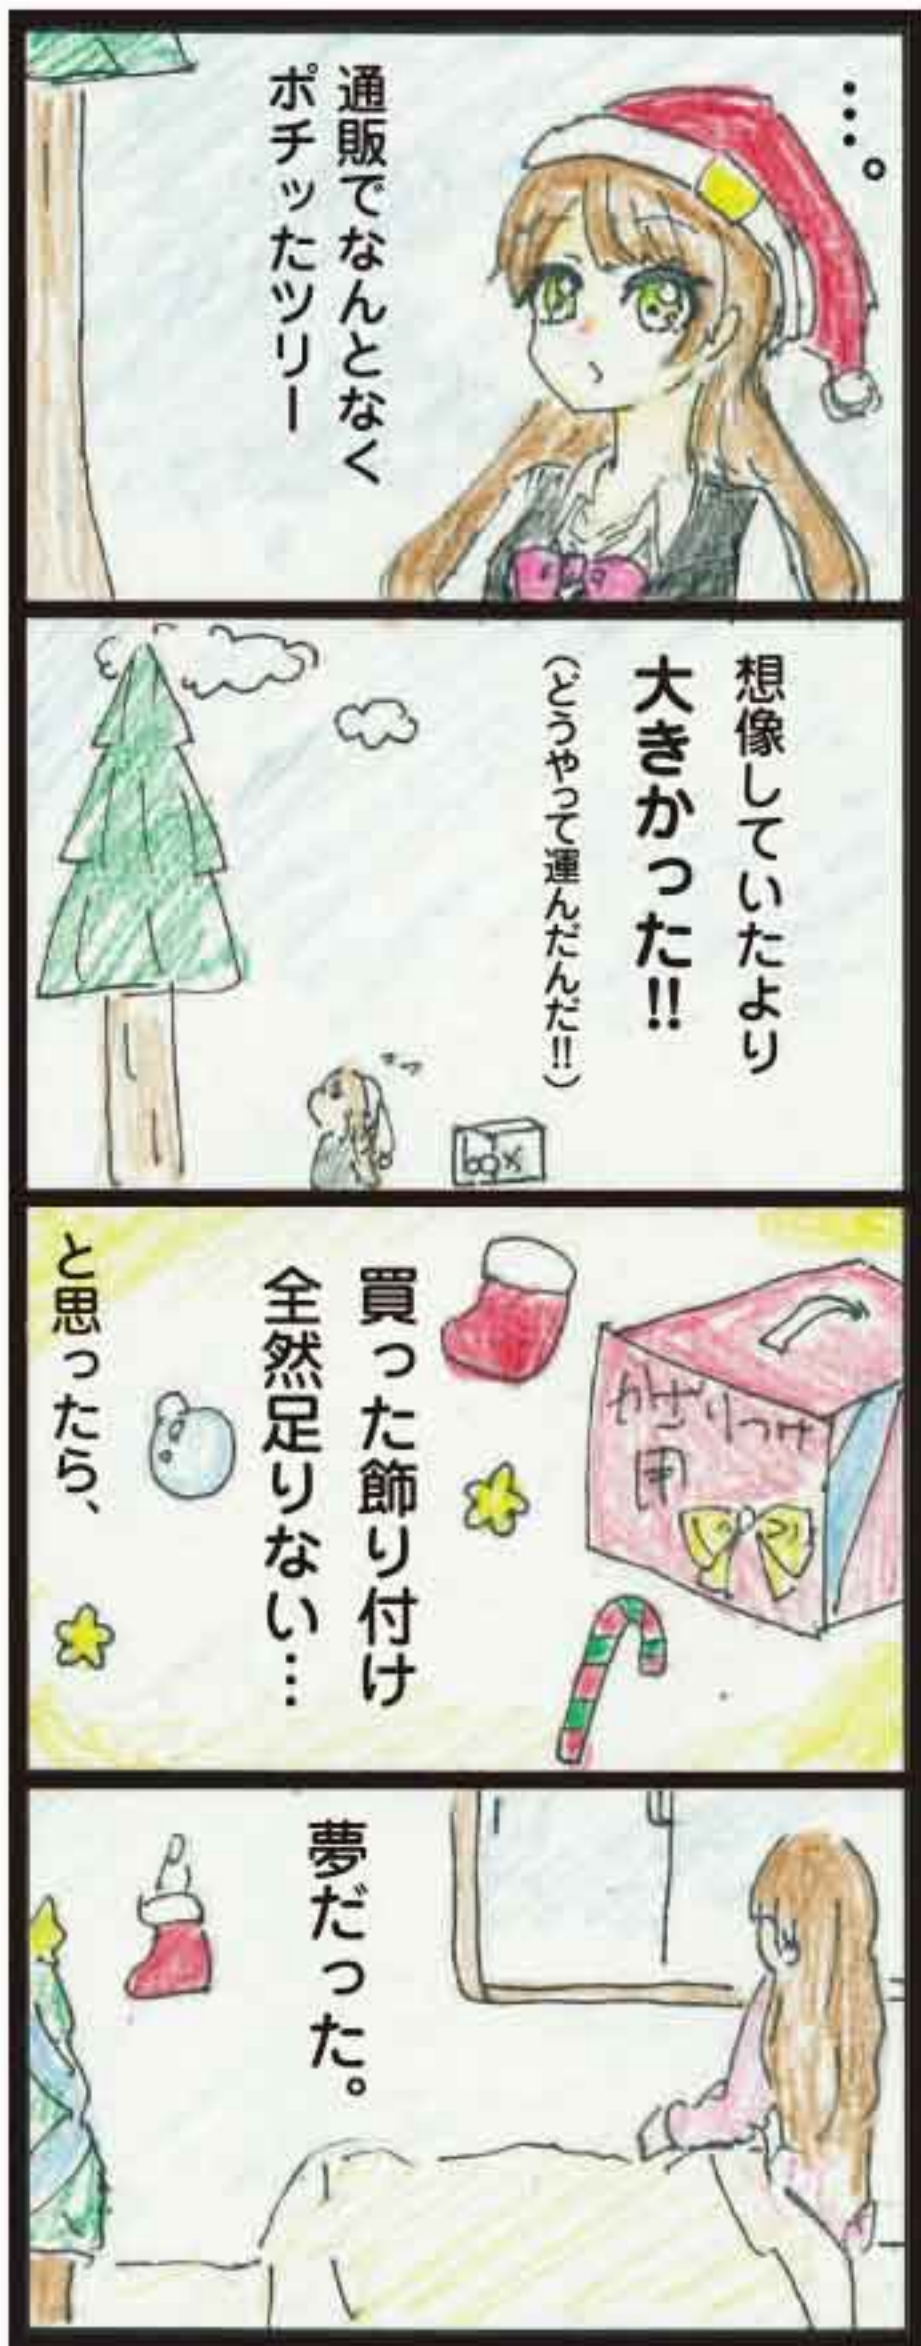 …。
通販でなんとなく
ポチッたツリー
想像していたより
大きかった!!
(どうやって運んだんだ!!)
box
かざりつけ
用
買った飾り付け
全然足りない…
と思ったら、
夢だった。